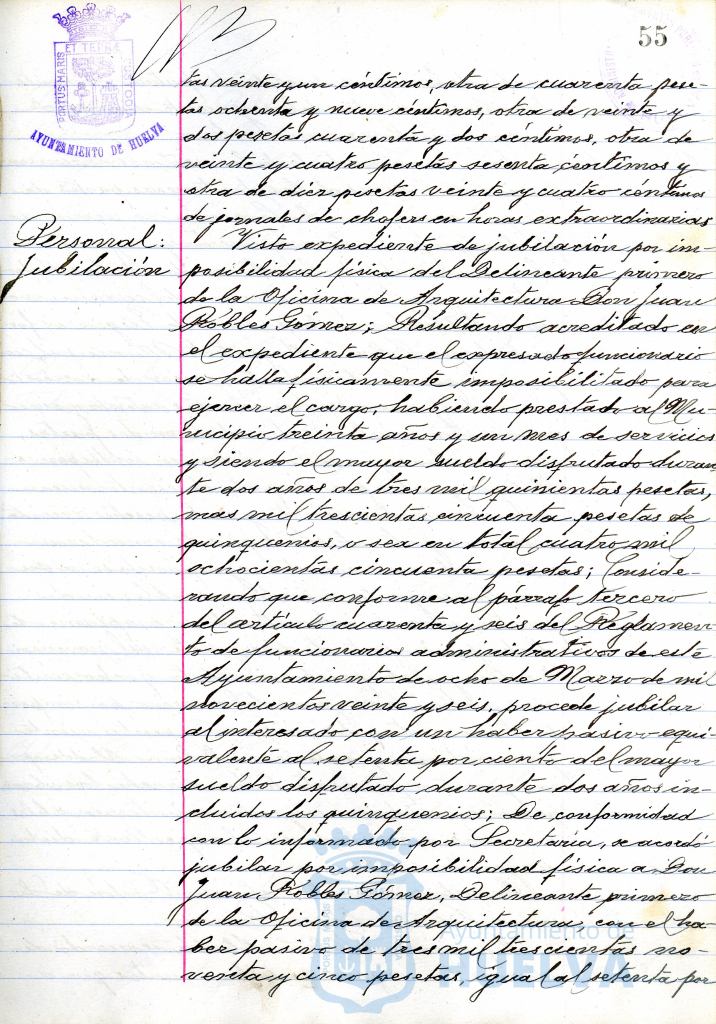 55
PORTUS MARIS ET TERRÆ CUSTODIA
AYUNTAMIENTO DE HUELVA
tas veinte y un céntimos, otra de cuarenta pese-
tas ochenta y nueve céntimos, otra de veinte y
dos pesetas cuarenta y dos céntimos, otra de
veinte y cuatro pesetas sesenta céntimos y
otra de diez pesetas veinte y cuatro céntimos
de jornales de chofers en horas extraordinarias
Personal:
Jubilación
Visto expediente de jubilación por im-
posibilidad física del Delineante primero
de la Oficina de Arquitectura Don Juan
Robles Gómez; Resultando acreditado en
el expediente que el expresado funcionario
se halla físicamente imposibilitado para
ejercer el cargo, habiendo prestado al Mu-
nicipio treinta años y un mes de servicios
y siendo el mayor sueldo disfrutado duran-
te dos años de tres mil quinientas pesetas,
mas mil trescientas cincuenta pesetas de
quinquenios, o sea en total cuatro mil
ochocientas cincuenta pesetas; Conside-
rando que conforme al párrafo tercero
del artículo cuarenta y seis del Reglamen-
to de funcionarios administrativos de este
Ayuntamiento de ocho de Marzo de mil
novecientos veinte y seis, procede jubilar
al interesado con un haber pasivo equi-
valente al setenta por ciento del mayor
sueldo disfrutado durante dos años in-
cluidos los quinquenios; De conformidad
con lo informado por Secretaría, se acordó
jubilar por imposibilidad física a Don
Juan Robles Gómez, Delineante primero
de la Oficina de Arquitectura, con el ha-
ber pasivo de tres mil trescientas no-
venta y cinco pesetas, igual al setenta por
Ayuntamiento de
HUELVA